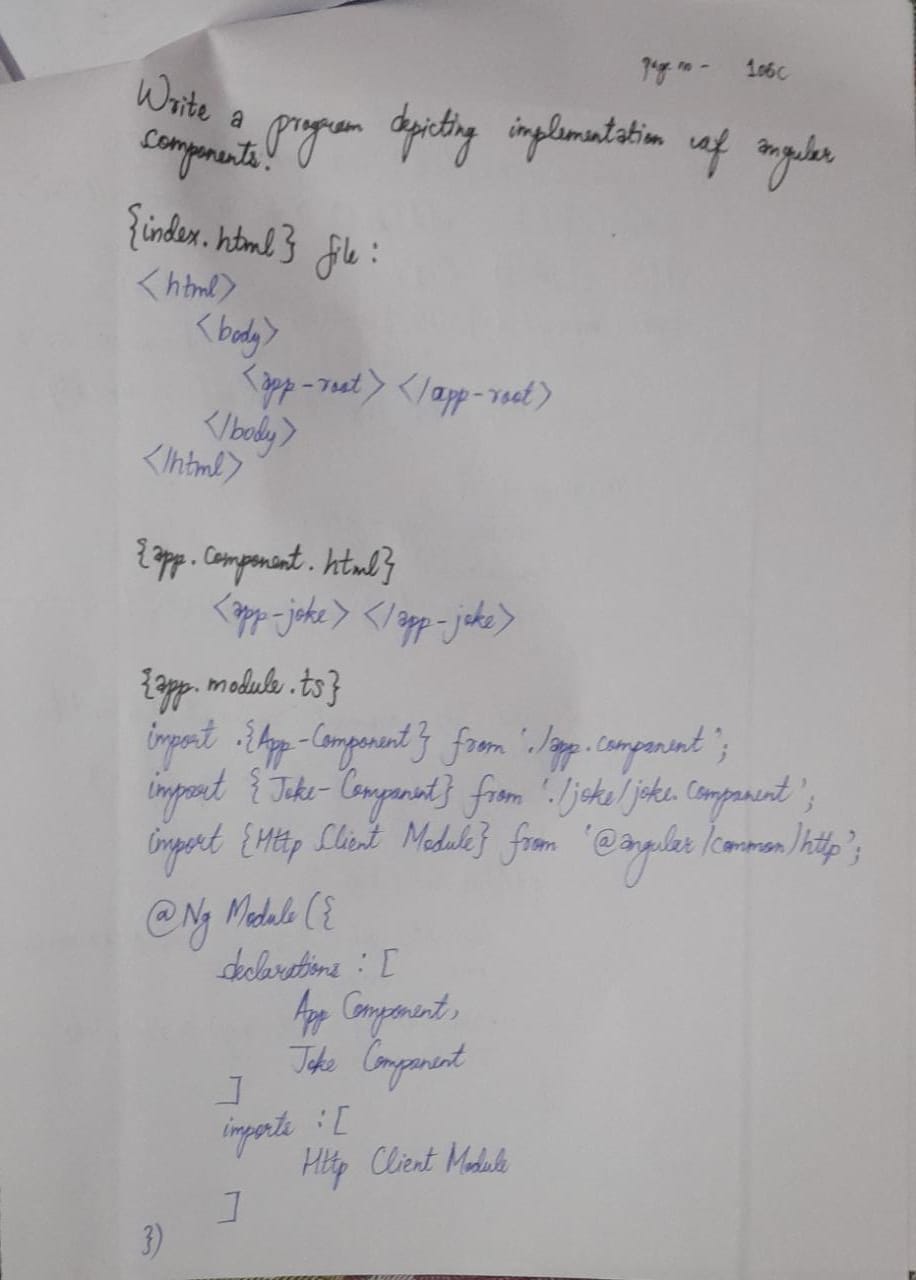 page no - 106C
Write a program depicting implementation of angular
components.
{index.html} file :
<html>
<body>
<app-root> </app-root>
</body>
</html>
{app.component.html}
<app-joke> </app-joke>
{app.module.ts}
import .{App-Component} from './app.component';
import { Joke-Component} from './joke/joke.component';
import {Http Client Module} from '@angular/common/http';
@Ng Module ({
declarations : [
App Component,
Joke Component
]
imports : [
Http Client Module
]
})